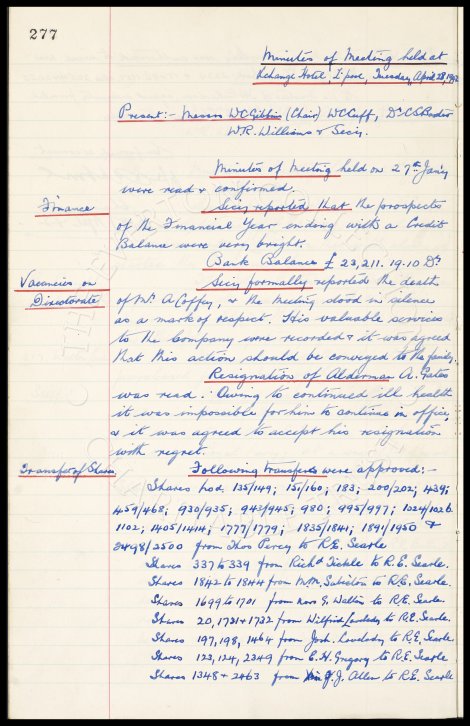 277
Minutes of Meeting held at
Xchange Hotel, L'pool, Tuesday, April 28,
Present:- Messrs W C Gibbins (Chair) W C Cuff, Dr C S Baxter
W. R. Williams & Secy.
Minutes of Meeting held on 27th Jan'y
were read & confirmed.
Finance
Secy reported that the prospects
of the Financial Year ending with a Credit
Balance were very bright.
Bank Balance £ 23,211. 19. 10 Dr
Vacancies on
Directorate
Secy formally reported the death
of Mr A Coffey, & the meeting stood in silence
as a mark of respect. His valuable services
to the Company were recorded & it was agreed
that this action should be conveyed to the family.
Resignation of Alderman A. Gates
was read. Owing to continued ill health
it was impossible for him to continue in office
& it was agreed to accept his resignation
with regret.
Transfer of Shares
Following transfers were approved:-
Shares Nos. 135/149; 151/160; 183; 200/202; 439;
459/468; 930/935; 943/945; 980; 995/997; 1024/1026
1102; 1405/1414; 1777/1779; 1835/1841; 1891/1950 &
2498/2500 from Thos Percy to R.E. Searle
Shares 337 to 339 from Richd Tickle to R.E. Searle.
Shares 1842 to 1844 from M.M. to R.E. Searle.
Shares 1699 to 1701 from G. Walton to R.E. Searle.
Shares 20, 1731 & 1732 from Wilfrid Loveday to R.E. Searle.
Shares 197, 198, 1464 from Josh. Loveladay to R.E. Searle.
Shares 123, 124, 2349 from E.H. Gregory to R.E. Searle
Shares 1348 & 2463 from J. Allen to R.E. Searle